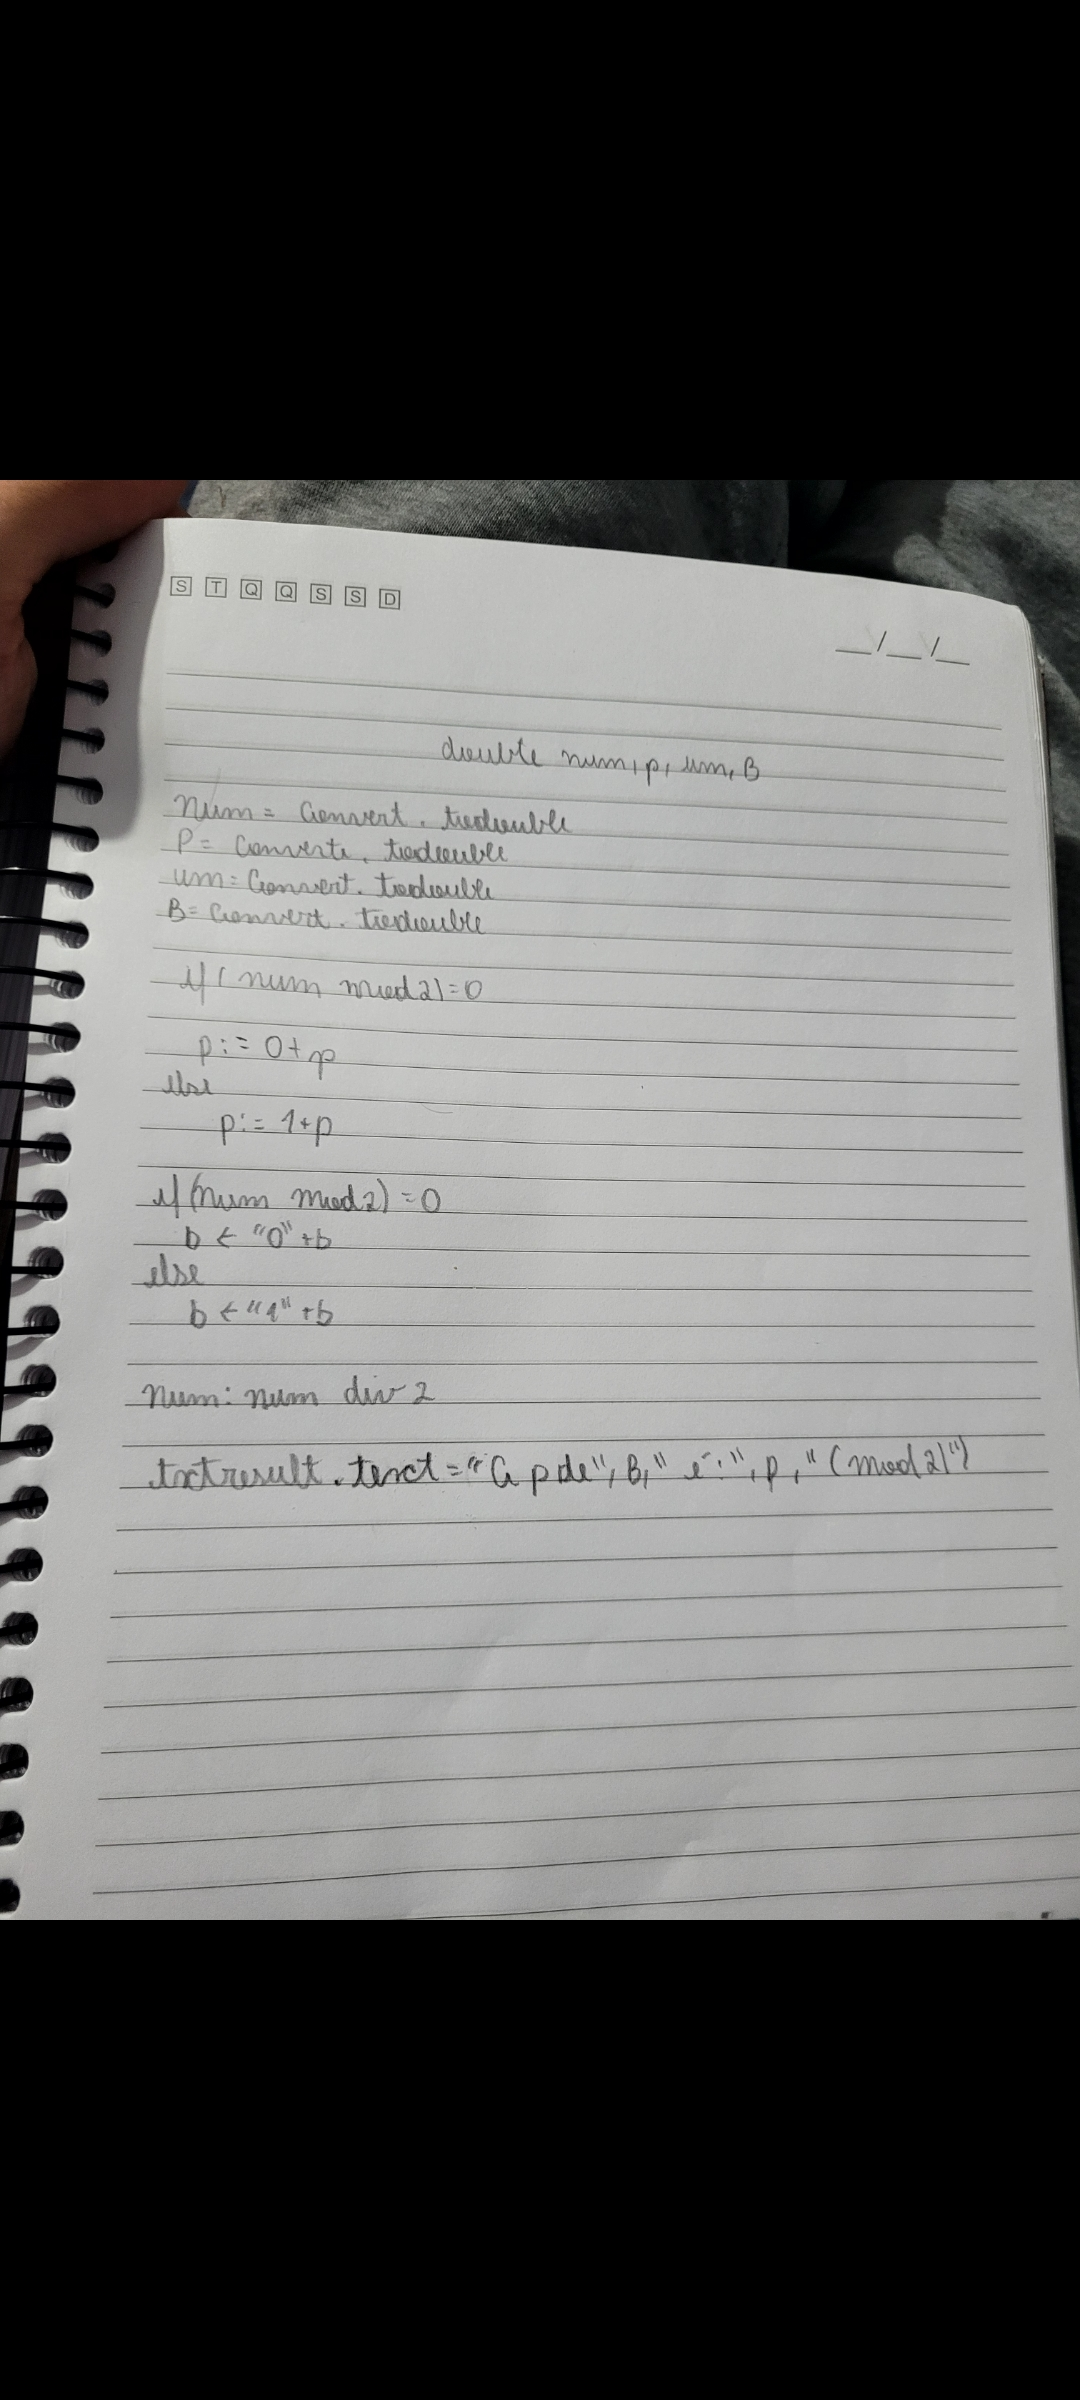 S T Q Q S S D
__/__/__
double num, p, um, B
Num = Convert. todouble
P = Converte. todouble
um = Convert. todouble
B = Convert. todouble
if ( num mod 2) = 0
p := 0 + p
else
p := 1 + p
if (num mod 2) = 0
b ← "0" + b
else
b ← "1" + b
Num: num div 2
txtresult. text = "A p de", B, " é :", p, " (mod 2)")